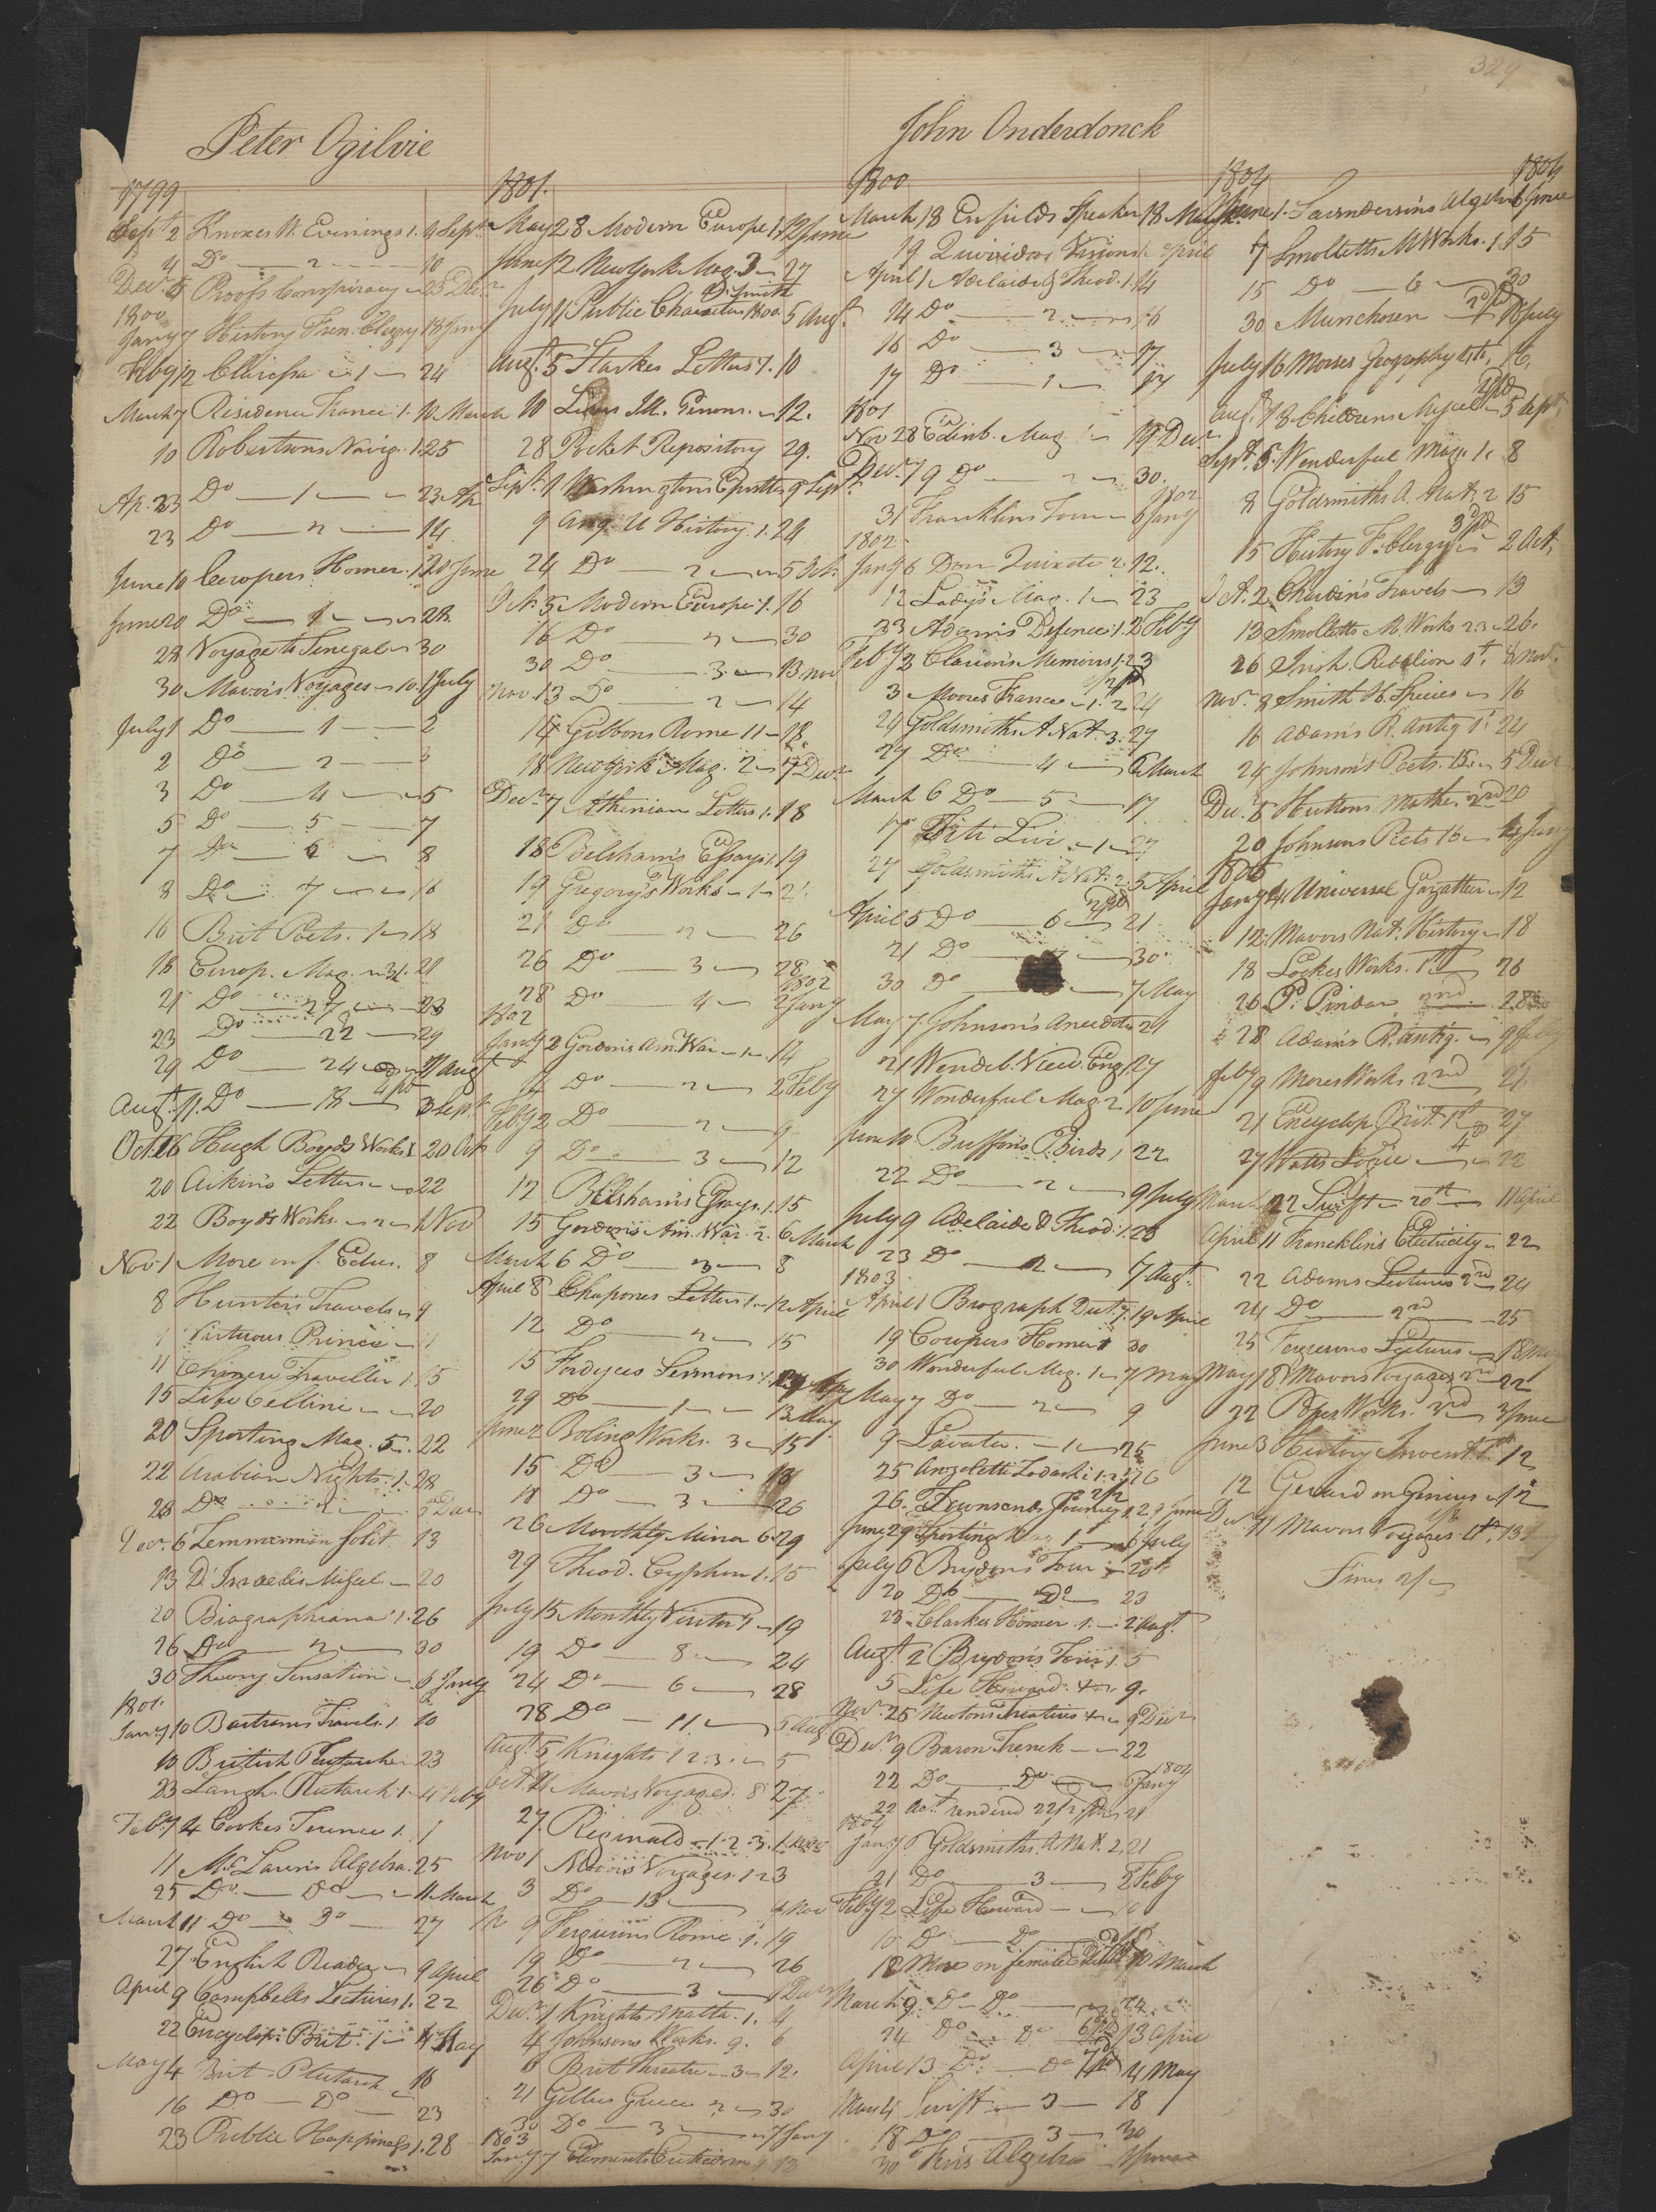 329
Peter Ogilvie
1799
Sept 2 Knoxes W. Evenings 1. 4 Sept
4 Do 2 10
Decr 5 Proofs Conspiracy 23 Decr
1800
Jany 7 History Fren. Clergy 13 Jany
Feby 12 Clarissa 1 24
March 7 Residence France 1. 10 March
10 Robertsons Navig. 1. 25
Ap. 23 Do 1 23 Ap
23 Do 2 14
June 10 Cowpers Homer 1. 20 June
June 20 Do 1 28
28 Voyage to Senegal 30
30 Mavors Voyages 10. 1 July
July 1 Do 1 2
2 Do 2 3
3 Do 4 5
5 Do 5 7
7 Do 6 8
8 Do 7 16
16 Brit Poets. 1 18
18 Europ. Mag. 31. 21
21 Do 27 23
23 Do 22 29
29 Do 24 11 Augt
Augt 11. Do 18 4pd 3 Sept
Oct. 16 Hugh Boyds Works 1 20 Oct
20 Aikins Letters 22
22 Boyds Works 2 1 Nov
Nov 1 More on f. Educ. 8
8 Hunters Travels 9
Virtuous Prince 11
11 Chinese Traveller 1. 15
15 Life Cellini 20
20 Sporting Mag. 5. 22
22 Arabian Nights. 1. 28
28 Do 2 5 Dec
Decr. 6 Zemmerman Solit. 13
13 D'Israelis Miscel 20
20 Biographiana 1. 26
26 Do 2 30
30 Theory Sensation 6 Jany
1801.
Jany 10 Bartrams Travels. 1 10
10 British Plutarch 23
23 Langh. Plutarch 1 4 Feby
Feby 4 Cookes Terence 1.
11 McLaurin Algebra. 25
25 Do Do 11 March
March 11 Do Do 27
27 English Reader 9 April
April 9 Campbells Lectures 1. 22
22 Encyclop. Brit. 1 4 May
May 4 Brit. Plutarch 16
16 Do Do 23
23 Public Happiness 1. 28
1801.
May 28 Modern Europe 1. 12 June
June 12 New York Mag. 3 27
July 11 Public Characters 1800. 5 Augt
Augt. 5 Starkes Letters 1. 10
10 12.
28 Pocket Repository 29.
Sept. 1 Washingtons Epistles 9 Sept
9 Ang. U History. 1. 24
24 Do 2 5 Oct.
Oct. 5 Modern Europe 1. 16
16 Do 2 30
30 Do 3 13 Nov
Nov. 13 Do 2 14
14 Gibbons Rome 11 18
18 New York Mag. 2 7 Decr
Decr. 7 Athenian Letters 1. 18
18 Belsham's Essays 1. 19
19 Gregory's Works 1 21.
21 Do 2 26
26 Do 3 28
1802
28 Do 4 2 Jany
1802
Jany 2 Gordons Am. War 1 14
Do 2 2 Feby
Feby 2 Do 2 9
9 Do 3 12
12 Belsham's Essays. 1. 15
15 Gordons Am. War. 2. 6 March
March 6 Do 3 8
April 8 Chapones Letters 1 12 April
12 Do 2 15
15 Fordyces Sermons 1. 29
29 Do 1 13 May
June 2 Boling Works. 3 15
15 Do 3 18
18 Do 3 26
26 Monthly Mirror 6 29
29 Theod. Cyphon 1. 15
July 15 Monthly Visitor 7 19
19 Do 8 24
24 Do 6 28
28 Do 11 5 Aug
Augt 5 Knights 1 2 3. 5
Oct. 21 Mavors Voyages. 8 27
27. Reginald 1. 2. 3. 1
Nov 1 Mavors Voyages. 12 3
3 Do 13 9 Nov
9 Fergusons Rome. 1. 19
19 Do 2 26
26 Do 3 1 Decr
Decr. 1 Knights Matta. 1. 4
4 Johnsons Works. 9. 6
6 Brit Theatre 3 12.
21 Gillies Greece 2 30
30 Do 3 7 Jany
1803
Jany 7 Elements Criticism 13
John Onderdonck
1800
March 18 Enfields Speaker 18 March
19 Quivedos Visions April
April 1 Adelaide & Theod. 1. 14
14 Do 2 16
16 Do 3 17
17 Do 1 17
1801
Nov 28 Edinb. Mag 1 19 Decr
Decr. 19 Do 2 30.
31 Franklins Tour 6 Jany 1802
1802
Jany 6 Don Quixote 2. 12.
12 Lady's Mag. 1 23
23 Adams Defence 1. 2 Feby
Feby 2 Clarions Memoirs 1. 2 3
3 Moores France 1. 2 24
24 Goldsmiths A Nat. 3. 27
27 Do 4 6 March
March 6 Do 5 17
17 Titi Livi 1 27
27 Goldsmiths A Nat. 2. 5 April
April 5 Do 6 2pd 21
21 Do 30
30 Do 7 May
May 7. Johnson's Anecdotes 21
21 Wendeb. View Eng 1. 27
27 Wonderful Mag 2 10 June
June 10 Buffons Birds 1 22
22 Do 2 9 July
July 9 Adelaide & Theod. 1. 23
23 Do 2 7 Augt
1803
April 1 Biograph Dict. 7. 19 April
19 Cowpers Homer 1 30
30 Wonderful Mag. 1 7 May
May 7 Do 2 9
9 Lavater. 1 25
25 1. 2 26
26. Townsends Journey 1. 2. 29 June
June 29 Sporting Mag 1 6 July
July 6 Brydons Tour 20
20 Do Do 23
23 Clarkes Homer. 1. 2 Augt
Augt. 2 Brydons Tour 1. 5
5 Life Howard. 9.
Novr. 25 Newtons Treatises 9 Decr
Decr 9 Baron Trenck 22
22 Do Do 6 Jany 1804
22 Act. rendered 22/2 21
1804
Jany 6 Goldsmiths A Nat. 2. 21
21 Do 3 2 Feby
Feby 2 Life Howard 10
10 Do Do
12 More on female Educ 10 March
March 9 Do Do 24
24 Do Do 6pd 13 April
April 13 Do Do 7pd 4 May
May 4 Swift 3 18
18 Do 3 30
30 Algebra June
1804 1804
June 1. Saundersons Algebra 6 June
7 Smolletts M Works. 1. 15
15 Do 6 30
30 Munchosen 2pd 16 July
July 16 Morses Geography 1st, 16,
Augt. 18 Childrens Miscel 2pd 5 Sept,
Sept. 5. Wonderful Mag. 1. 8
8 Goldsmiths A. Nat. 2 15
15 History F. Clergy 3pd 2 Oct,
Oct. 2 Chardin's Travels 13
13 Smolletts M. Works 2.3 26.
26 Irish Rebelion 1st, 8 Novr.
Novr. 8 Smith H. Species 16
16 Adam's R. Antiq 1st 24
24 Johnson's Poets. 15. 5 Decr
Decr 5 Huttons Mathe. 2nd 20
20 Johnsons Poets 16 4 Jany
1805
Jany 4 Universal Gazatteer 12
12 Mavors Nat. History 18
18 Lockes Works. 1st 26
26 P. Pindar 2nd 28
28 Adam's R. Antiq. 9 Feby
Feby 9 Mores Works 2nd 21
21 Encyclop. Brit. 1st 27
27 Watts Logic 22
March 22 Swift 20th 11 April
April 11 Francklin's Electricity 22
22 Adams Lectures 2nd 24
24 Do 2nd 25
25 Fergusons Lectures 18 May
May 18 Mavors Voyages 2nd 22
22 Popes Works. 2nd 3 June
June 3 History Invent. 1st 12
12 Gerard on Genius 12
Decr 11 Mavors Voyages 13 Jany
Fines 2/